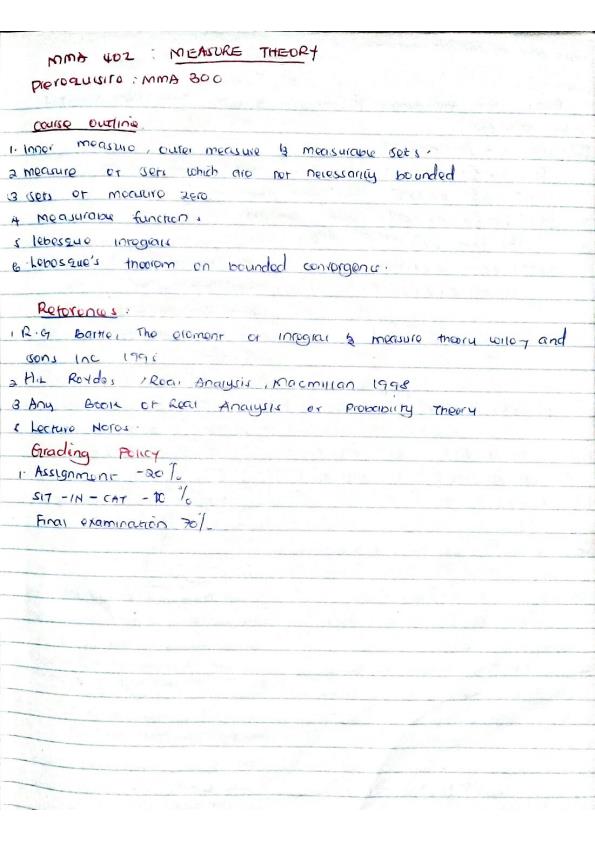 MMA 402 : MEASURE THEORY
Prerequisite : MMA 300
Course Outline
1. Inner measure, outer measure & measurable sets.
2 measure of sets which are not necessarily bounded
3 sets of measure zero
4 Measurable function.
5 lebesque integrals
6. Lebesque's theorem on bounded convergence.
References :
1. R.G Bartle, The element of integral & measure theory wiley and
sons Inc
2 H.L , Real Analysis, Macmillan 1998
3 Any Book of Real Analysis or Probability Theory
Lecture Notes.
Grading Policy
1. Assignment - 20 %
SIT - IN - CAT - 10 %
Final examination 70%